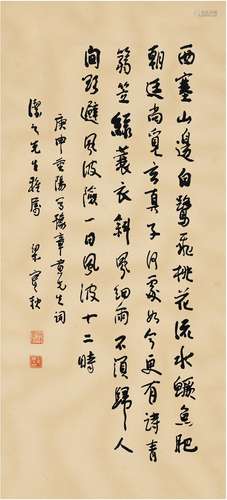 西塞山邊白鷺飛桃花流水鱖魚肥
朝廷尚覓玄真子何處如今更有詩青
箬笠綠蓑衣斜風細雨不須歸人
間欲避風波險一日風波十二時
庚申重陽寫豫章黃先生詞
潔之先生雅屬 梁寔秋